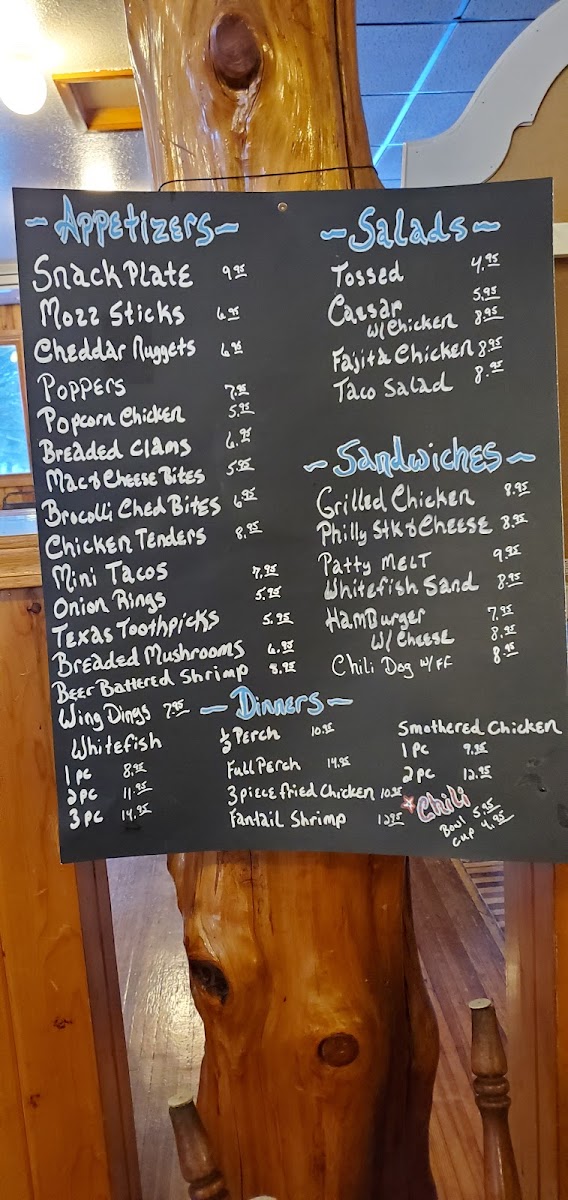 ~Appetizers~
Snack Plate 9.95
Mozz Sticks 6.95
Cheddar Nuggets 6.95
Poppers 7.95
Popcorn Chicken 5.95
Breaded Clams 6.95
Mac & Cheese Bites 5.95
Brocolli Ched Bites 6.95
Chicken Tenders 8.95
Mini Tacos 7.95
Onion Rings 5.95
Texas Toothpicks 5.95
Breaded Mushrooms 6.95
Beer Battered Shrimp 8.95
Wing Dings 7.95
~Salads~
Tossed 4.95
Caesar 5.95
w/ Chicken 8.95
Fajita Chicken 8.95
Taco Salad 8.95
~Sandwiches~
Grilled Chicken 8.95
Philly Stk & Cheese 8.95
Patty Melt 9.95
Whitefish Sand 8.95
Hamburger 7.95
w/ Cheese 8.95
Chili Dog w/ FF 8.95
~Dinners~
Whitefish
1 pc 8.95
2 pc 11.95
3 pc 14.95
½ Perch 10.95
Full Perch 14.95
3 piece fried Chicken 10.95
Fantail Shrimp 12.95
Smothered Chicken
1 pc 9.95
2 pc 12.95
*Chili
Bowl 5.95
Cup 4.95